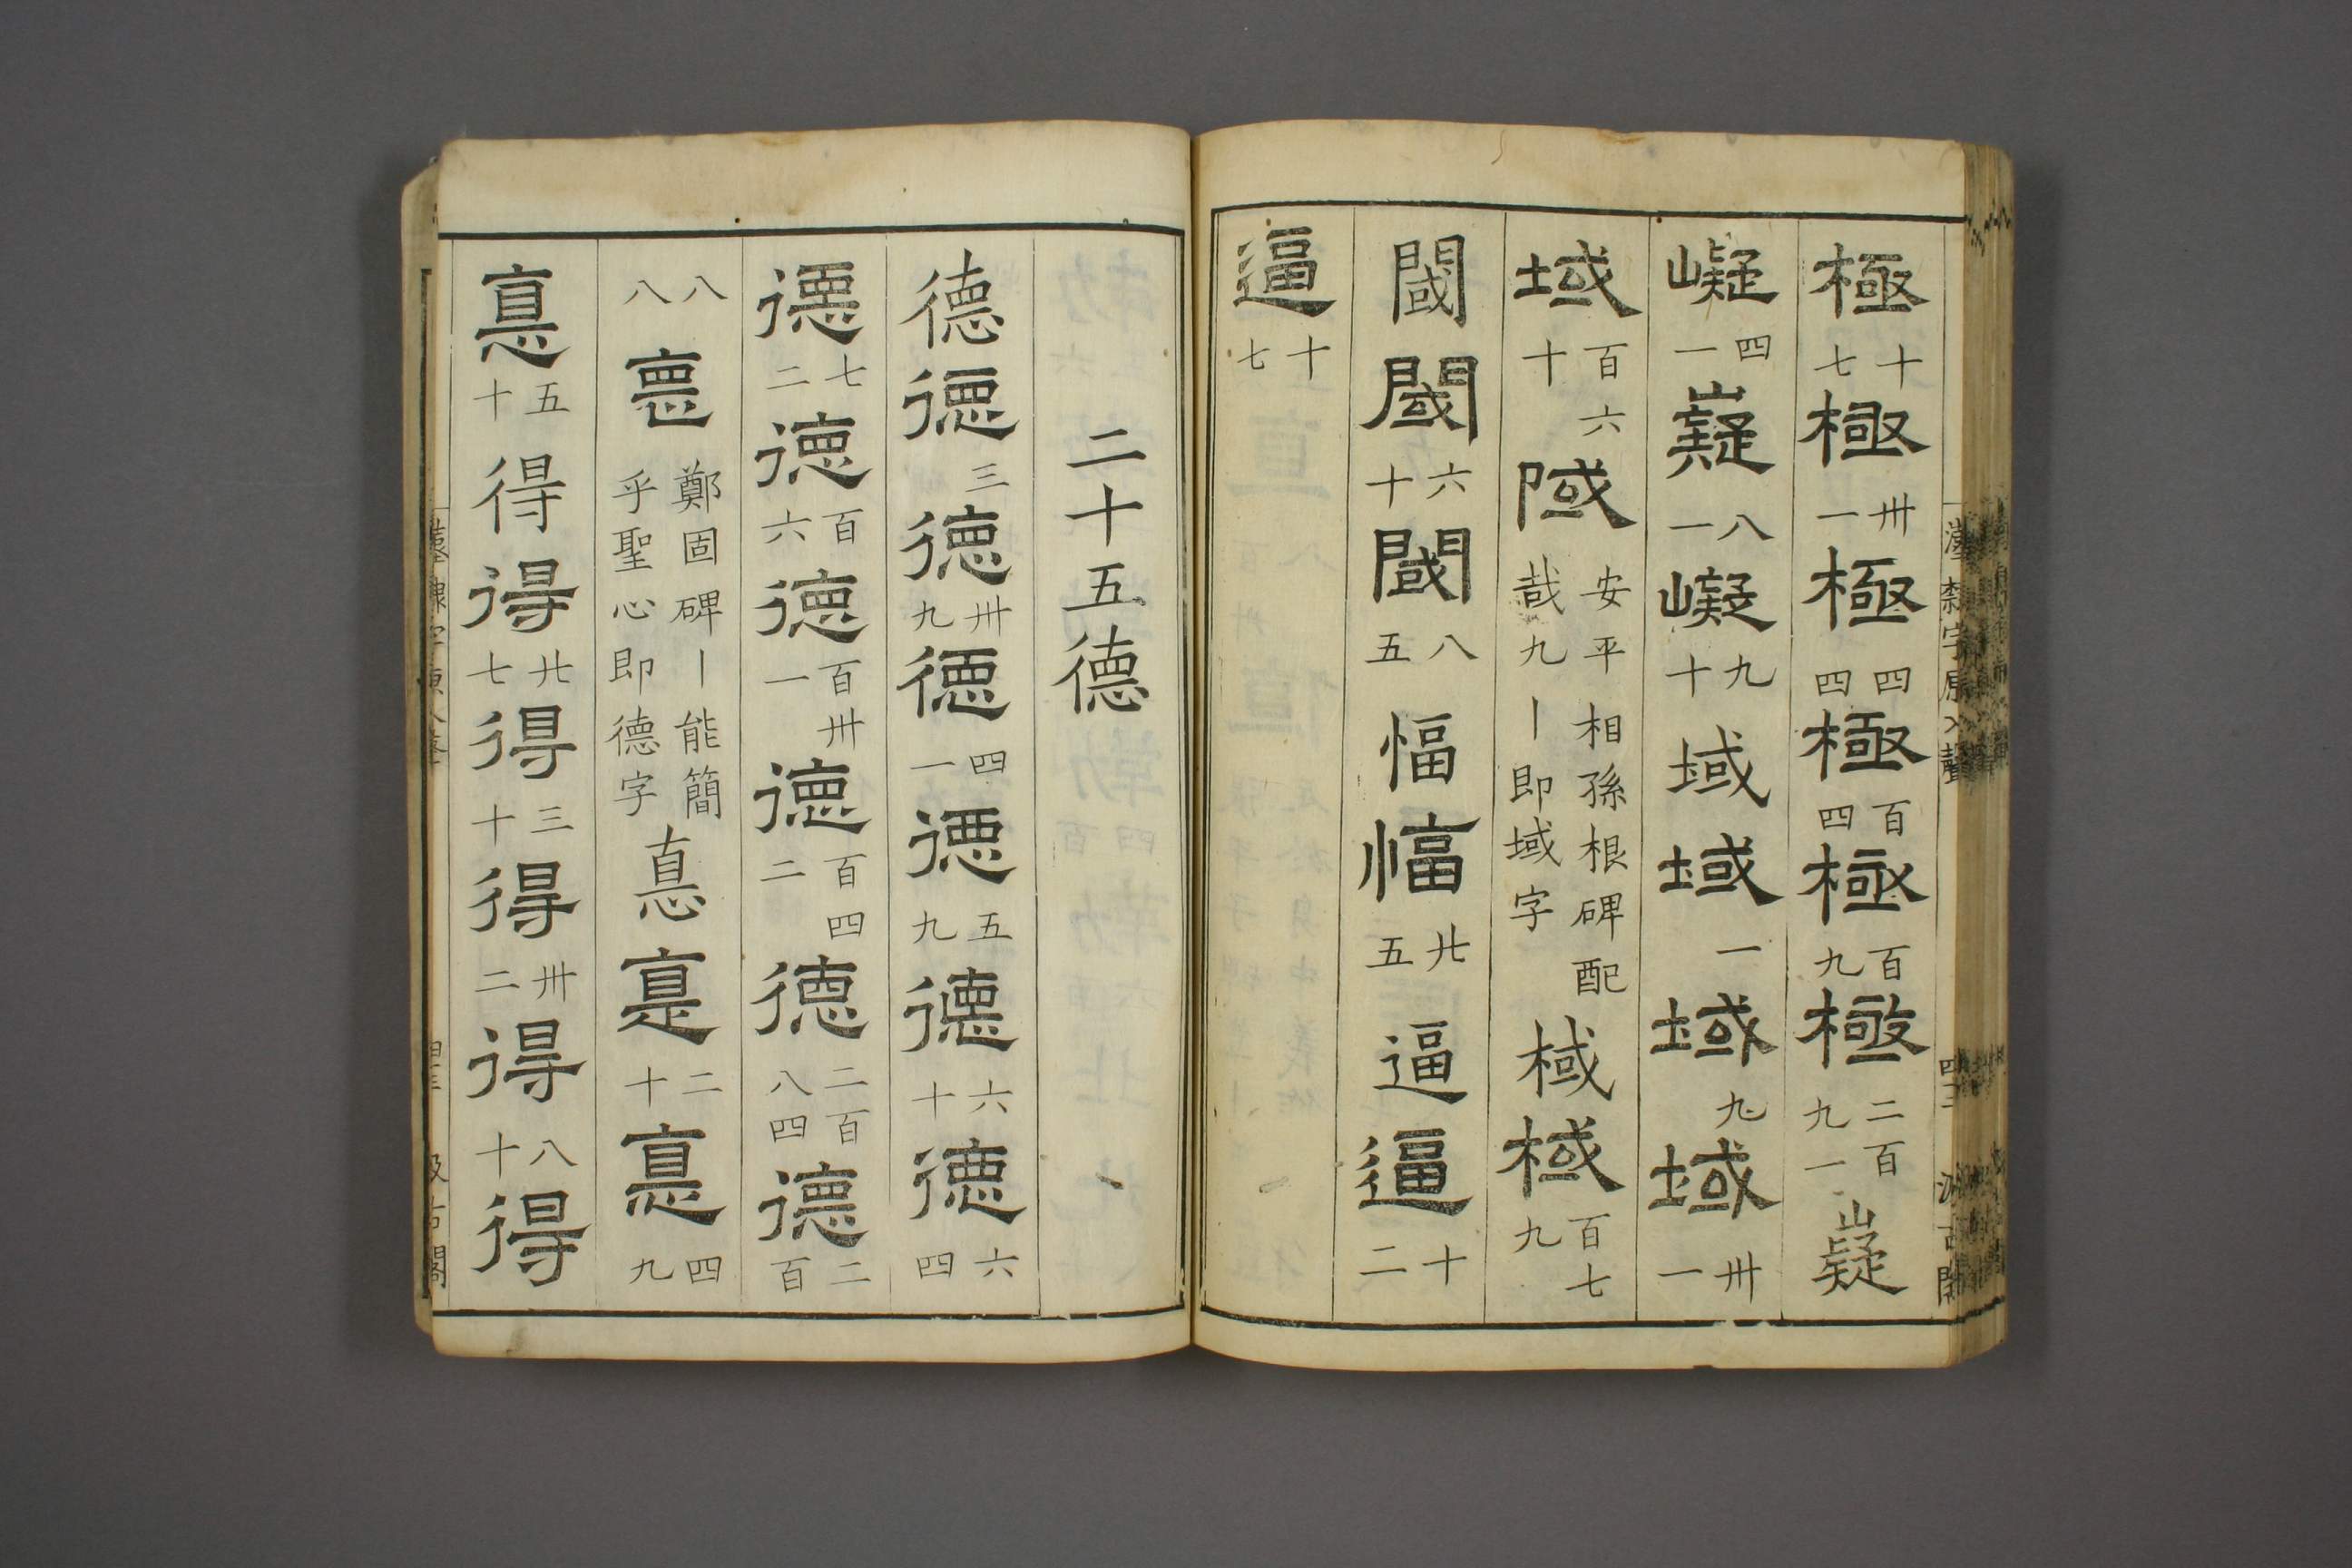 極十七極卅一極四四極百四極百九極二百九一嶷
嶷四一嶷八一嶷九十域域一域九域卅一
域百六十𨺗安平相孫根碑配哉九丨即域字棫棫百七九
閾閾六十閾八五愊愊廿五逼逼十二
逼十七
漢隷字原入聲 四三 汲古閣
二十五德
德德三德卅九德四一德五九德六十德六四
德七二德百六德百卅一德百四二德二百八四德二百
八八悳鄭固碑丨能簡乎聖心即德字悳悳二十悳四九
悳五十得得廿七得三十得卅二得八十得